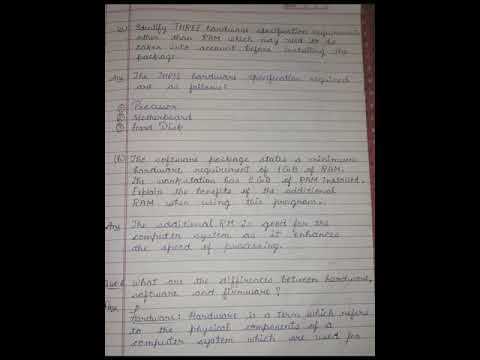 (a) Identify THREE hardware specification requirements
other than RAM which may need to be
taken into account before installing the
package.
Ans The THREE hardware specification required
are as follows:
① Processor
② Motherboard
③ Hard Disk
(b) The software package states a minimum
hardware requirement of 1GB of RAM.
The workstation has 2GB of RAM Installed.
Explain the benefits of the additional
RAM when using this program.
Ans The additional RM is good for the
computer system as it enhances
the speed of processing.
What are the diffirences between hardware,
software and firmware?
Hardware: Hardware is a term which refers
to the physical components of a
computer system which are used for